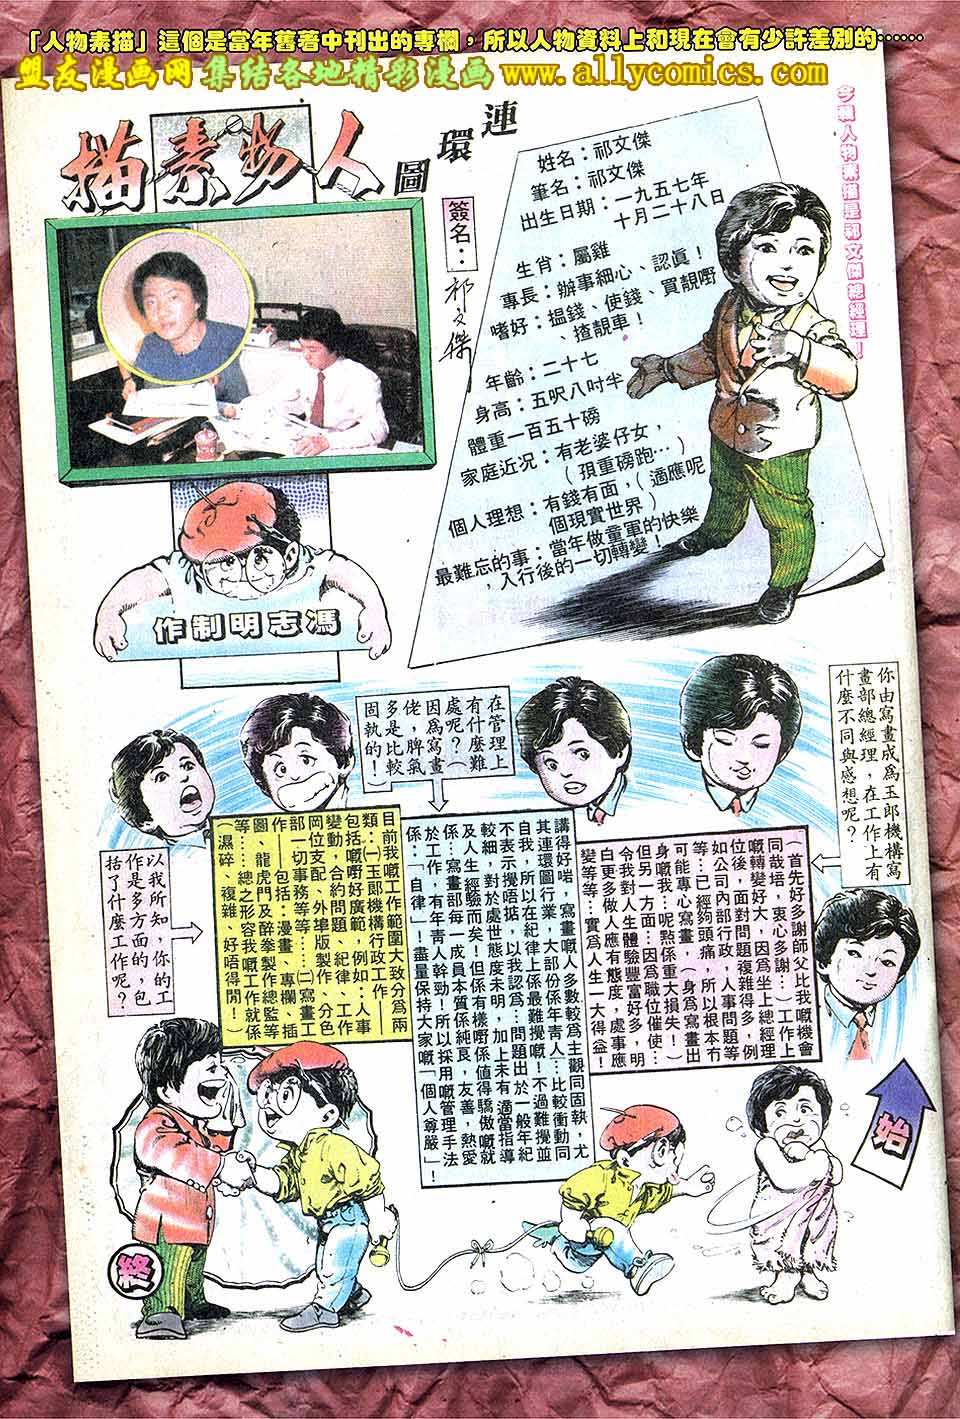 「人物素描」這個是當年舊著中刊出的專欄，所以人物資料上和現在會有少許差別的⋯⋯
盟友漫画网 集结各地精彩漫画 www.allycomics.com
今輯人物素描是祁文傑總經理！
連環圖
人物素描
簽名：
祁文傑
姓名：祁文傑
筆名：祁文傑
出生日期：一九五七年
十月二十八日
生肖：屬雞
專長：辦事細心、認眞！
嗜好：搵錢、使錢、買靚嘢
、揸靚車！
年齡：二十七
身高：五呎八吋半
體重一百五十磅
家庭近況：有老婆仔女，
（孭重磅跑…）
個人理想：有錢有面，（適應呢
個現實世界）
最難忘的事：當年做童軍的快樂
，入行後的一切轉變！
馮志明制作
始
你由寫畫成爲玉郎機構寫
畫部總經理，在工作上有
什麼不同與感想呢？
（首先好多謝師父比我嘅機會
同哉培，衷心多謝…）工作上
嘅轉變好大，因爲坐上總經理
位後，面對問題複雜得多，例
如公司內部行政，人事問題等
等…已經夠頭痛，所以根本冇
可能專心寫畫，（身爲寫畫出
身嘅我…呢㸃係重大損失！）
但另一方面…因爲職位催使…
令我對人生體驗豐富好多，明
白更多做人應有態度，處事應
變等等…實爲人生一大得益！
在管理上
有什麼難
處呢？（
因爲寫畫
佬，脾氣
多是比較
固執的！）
講得好啱，寫畫嘅人多數較爲主觀同固執，尤
其連環圖行業，大部份係年青人…比較衝動同
自我，所以在紀律上係最難攪嘅！不過難攪並
不表示攪唔掂，以我認爲…問題出於一般年紀
較細，對於處世態度未明，加上未有適當指導
及人生經驗而矣！但係有樣嘢係值得驕傲嘅就
係…寫畫部每一成員本質係純良，友善，熱愛
於工作，有年青人幹勁！所以採用嘅管理手法
係「自律」——盡量保持大家嘅「個人尊嚴」！
以我所知，你的工
作是多方面的，包
括了什麼工作呢？
目前我嘅工作範圍大致分爲兩
類：㈠玉郎機構行政工作——
包括嘅嘢好廣範，例如：人事
變動，合約問題、紀律、工作
岡位支配、外埠版製作、分色
部一切事務等等……㈡寫畫工
作——包括：漫畫、專欄、插
圖、龍虎門及醉拳製作總監等
等……總之形容我嘅工作就係
（濕碎、複雜、好唔得閒！）
終